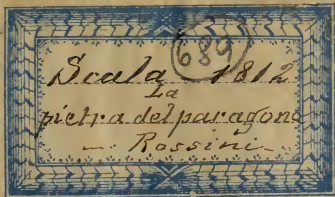 689
Scala 1812
La
pietra del paragone
Rossini